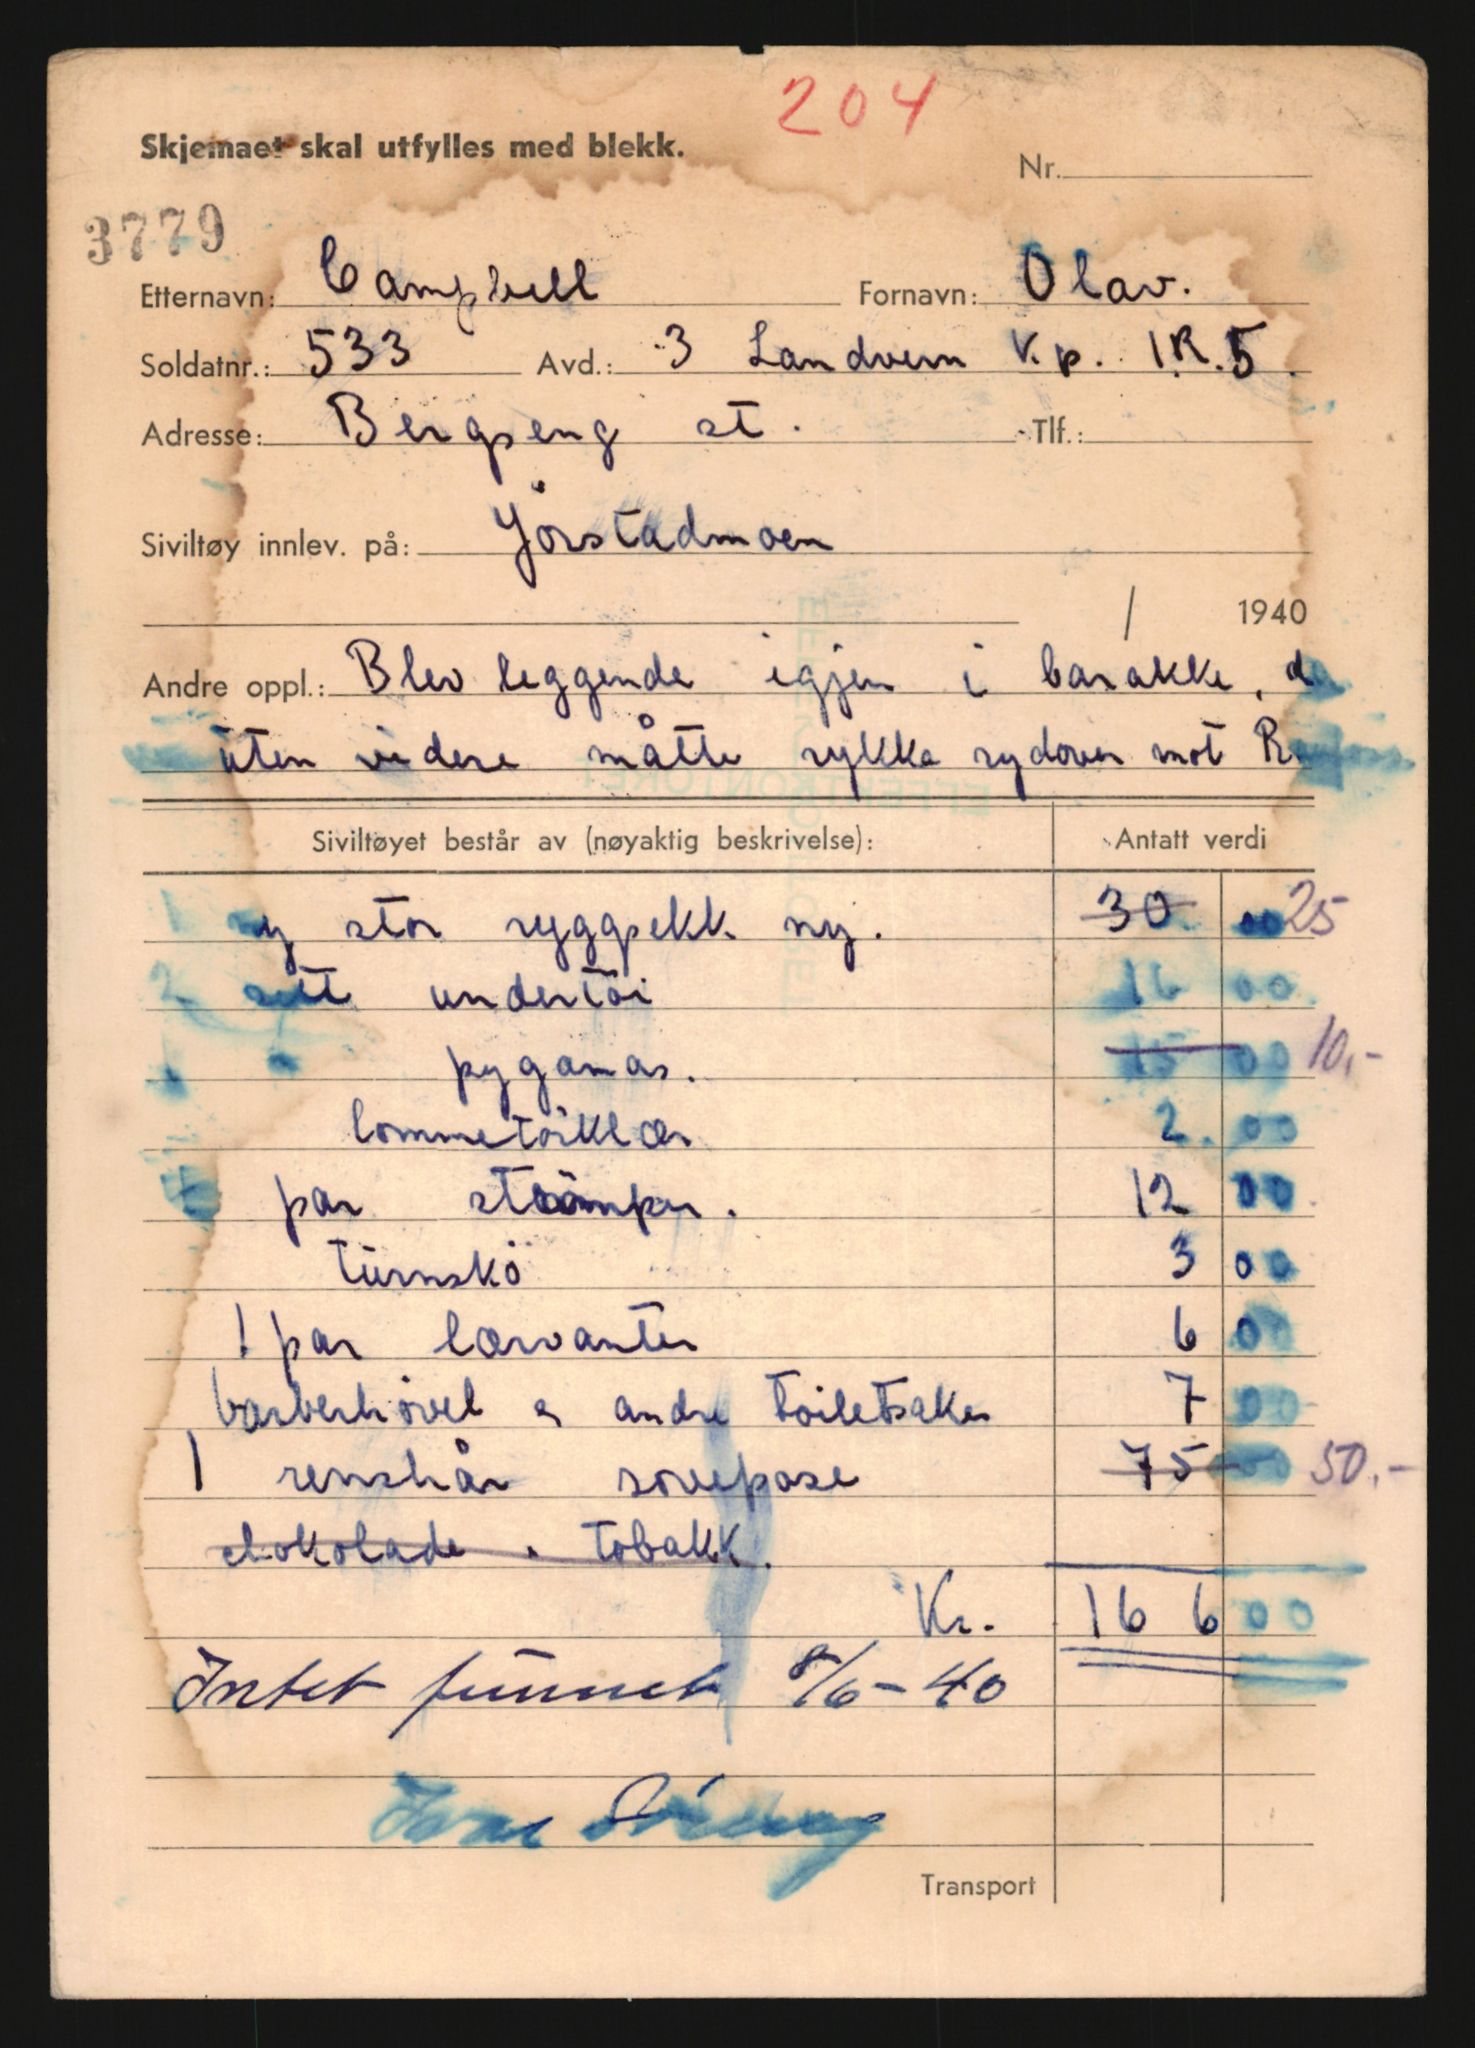 204
Skjemaet skal utfylles med blekk.
Nr.
3779
Etternavn: Campbell Fornavn: Olav.
Soldatnr.: 533 Avd.: 3 Landvern K.p. I.R.5.
Adresse: Bergseng st. Tlf.:
Siviltøy innlev. på: Jörstadmoen
/ 1940
Andre oppl.: Blev leggende igjen i barakke, da
uten videre måtte rykke sydover mot Raufoss
Siviltøyet består av (nøyaktig beskrivelse): Antatt verdi
1 ny stor ryggsekk ny. 30 00 25
2 sett undertöi 16 00
1 pygamas. 15 00 10.-
lommetörklær 2. 00
par strömper. 12 00
turnskö 3 00
1 par lærvanter 6 00
barberhövel & andre toiletsaker 7 00
1 renshår sovepose 75 00 50.-
chokolade & tobakk.
Kr. 166 00
Intet funnet 8/6-40
Transport